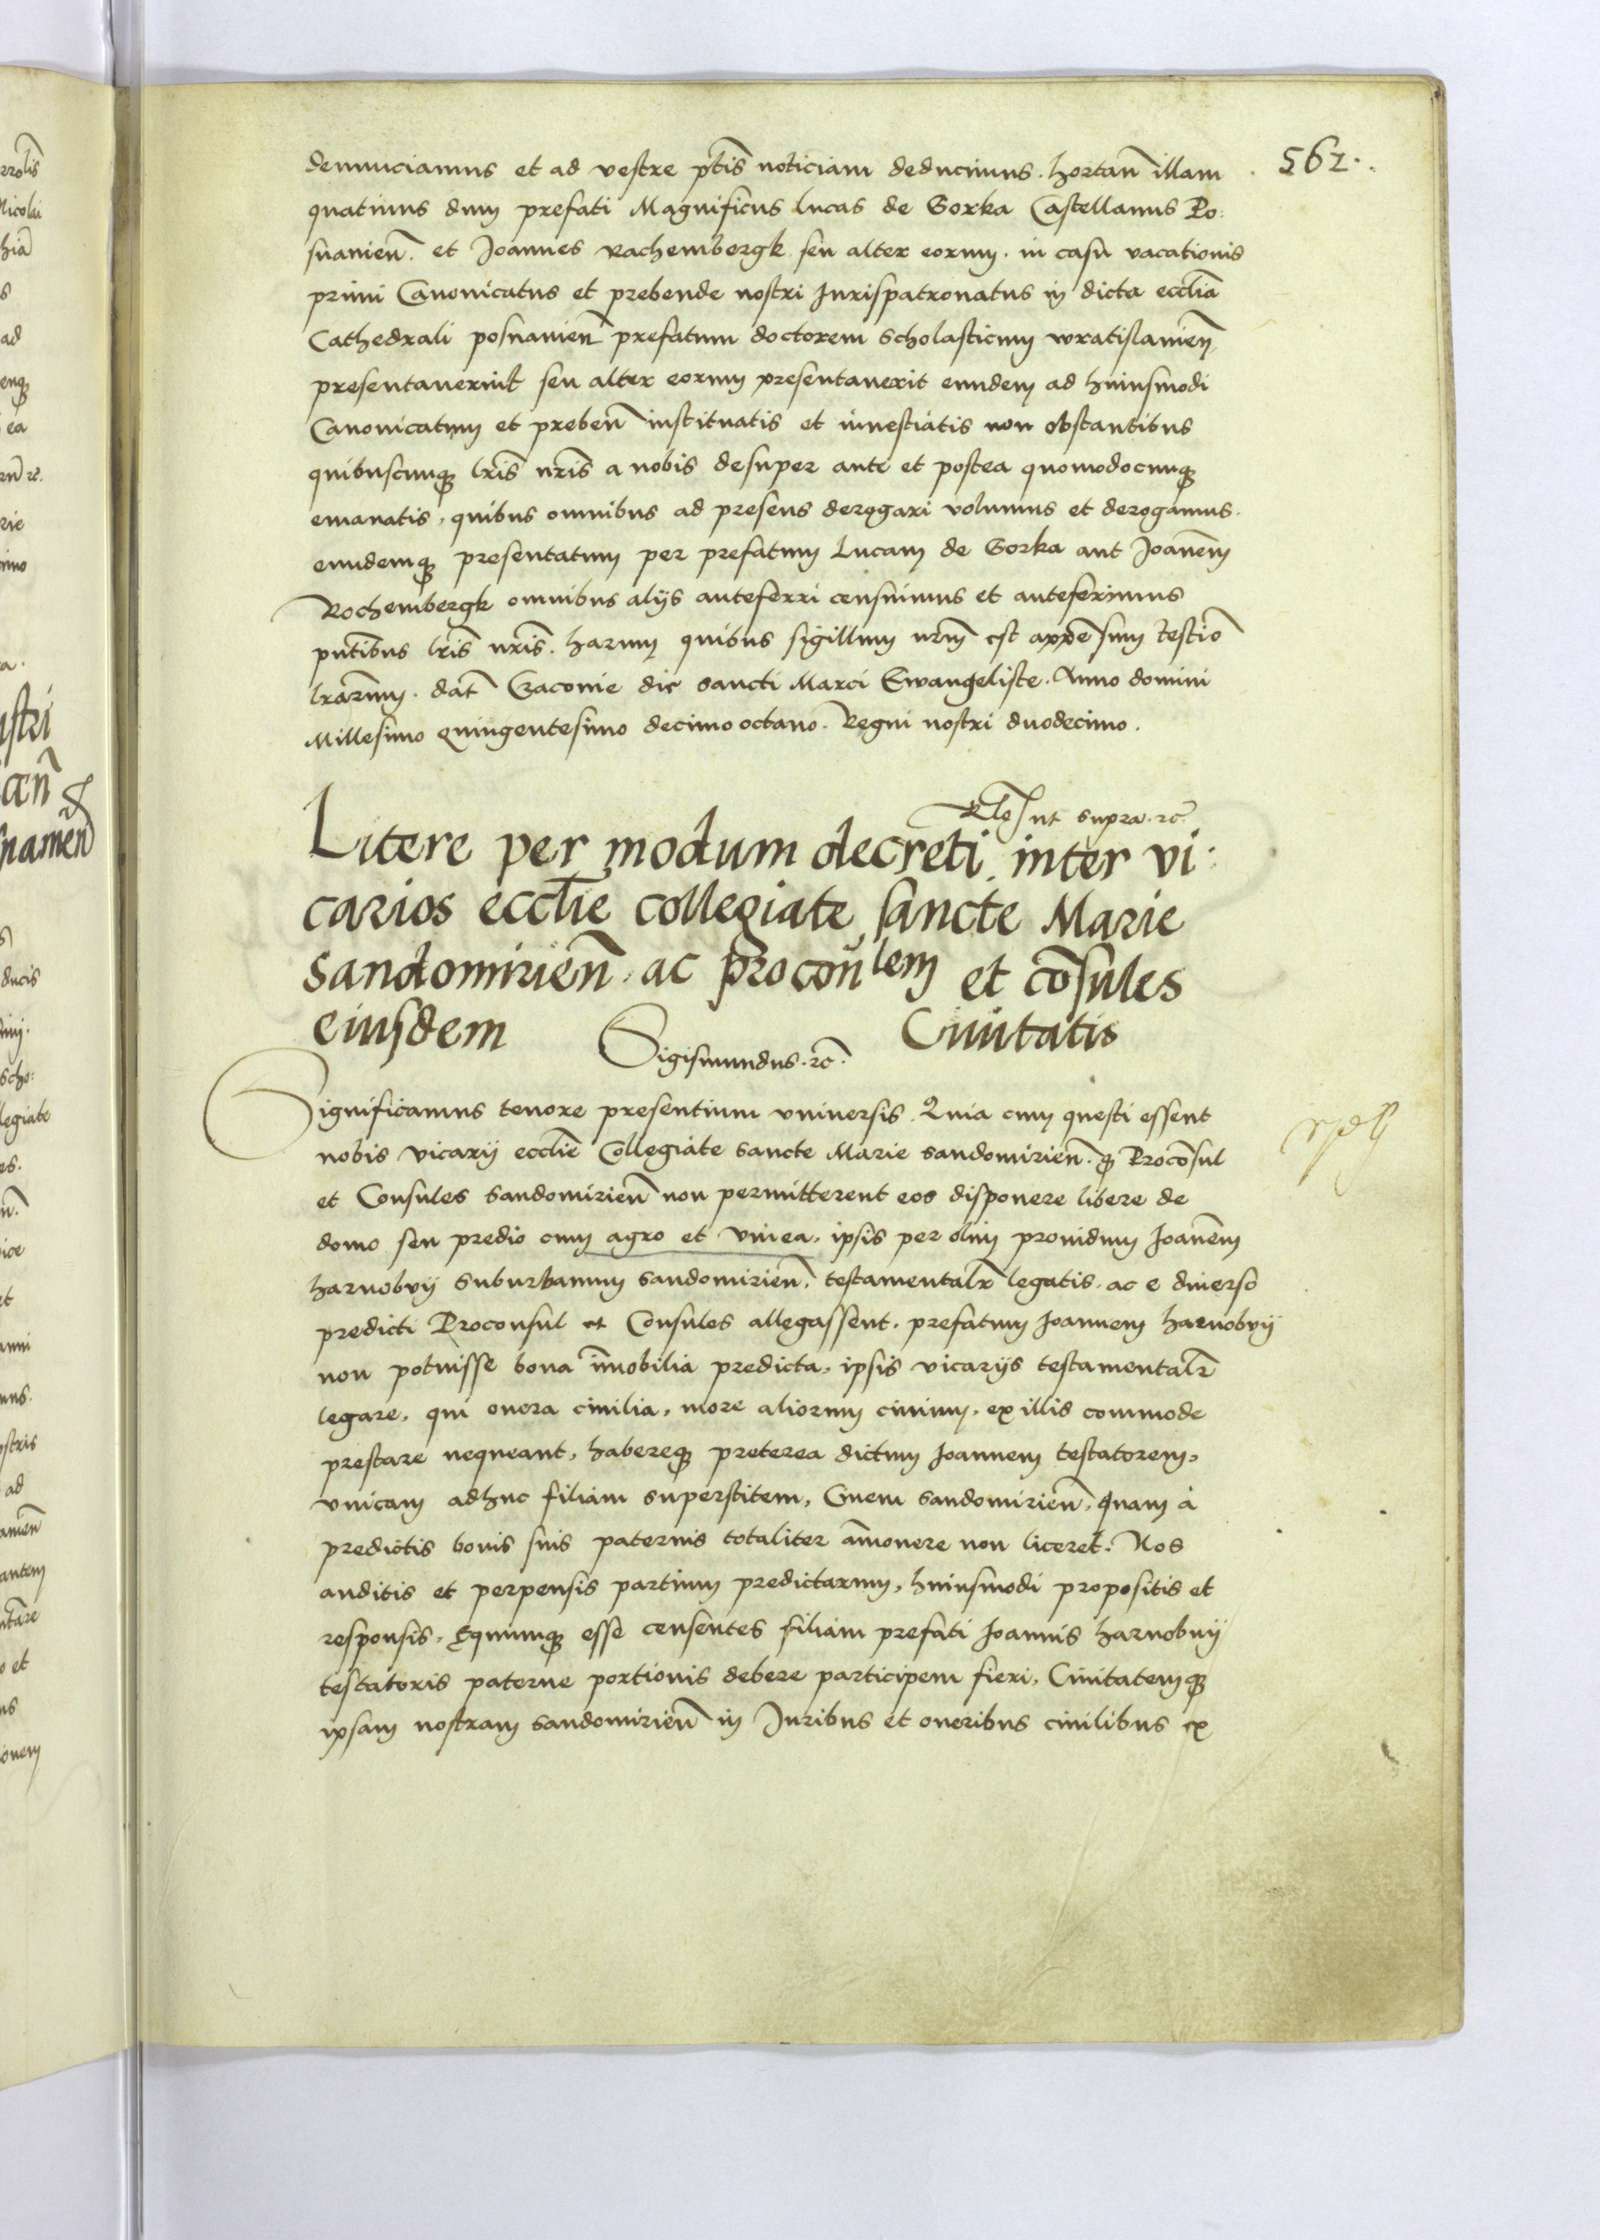 561.
denunciamus et ad vestre ptis noticiam deducimus. hortan illam
quatinus dum prefati Magnificus Lucas de Gorka Castellanus Po:
snanien. et Joannes Rachembergk seu alter eorum. in casu vacationis
primi Canonicatus et prebende nostri Jurispatronatus in dicta ecclia
Cathedrali posnanien prefatum doctorem scholasticum wratislavien
presentaverint seu alter eorum presentaverit eundem ad huiusmodi
Canonicatum et preben instituatis et investiatis non obstantibus
quibuscunq lris nris a nobis desuper ante et postea quomodocunq
emanatis, quibus omnibus ad presens derogari volumus et derogamus.
eundemq presentatum per prefatum Lucam de Gorka aut Joanem
Rochembergk omnibus alijs anteferri censuimus et anteferimus
pntibus lris nris. harum quibus sigillum nrm est appensum testio
lrarum. dat Cracovie die sancti Marci Ewangeliste. Anno domini
Millesimo quingentesimo decimooctavo. Regni nostri duodecimo.
Rlo ut supra. rc
Litere per modum decreti inter vi:
carios ecclie collegiate sancte Marie
Sandomirien. ac proconlem et cosules
eiusdem Civitatis
Sigismundus. rc.
Significamus tenore presentium universis. Quia cum questi essent
nobis vicarij ecclie Collegiate sancte Marie sandomirien. q Procosul
et Consules Sandomirien non permitterent eos disponere libere de
domo seu predio cum agro et vinea, ipsis per olim providum Joanem
harnobvij suburbanum sandomirien, testamentalr legatis. ac e diverso
predicti Proconsul et Consules allegassent, prefatum Joannem harnobvij
non potuisse bona imobilia predicta, ipsis vicarijs testamentalr
legare, qui onera civilia, more aliorum civium, ex illis commode
prestare nequeant, habereq preterea dictum Joannem testatorem,
unicam adhuc filiam superstitem, Cvem sandomirien, quam a
predictis bonis suis paternis totaliter amovere non liceret. Nos
auditis et perpensis partium predictarum, huiusmodi propositis et
responsis, Equumq esse censentes filiam prefati Joannis harnobvij
testatoris paterne portionis debere participem fieri, Civitatemq
ipsam nostram sandomirien in Juribus et oneribus civilibus ex